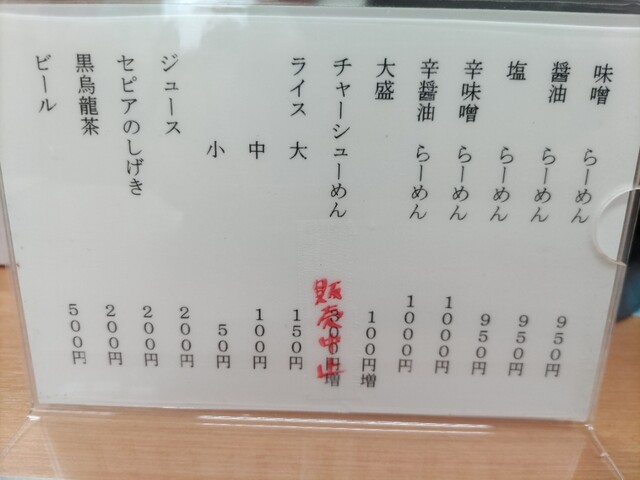 味噌 らーめん 950円
醤油 らーめん 950円
塩 らーめん 950円
辛味噌 らーめん 1000円
辛醤油 らーめん 1000円
大盛 100円増
チャーシューめん 円増
販売中止
ライス 大 150円
中 100円
小 50円
ジュース 200円
セピアのしげき 200円
黒烏龍茶 200円
ビール 500円